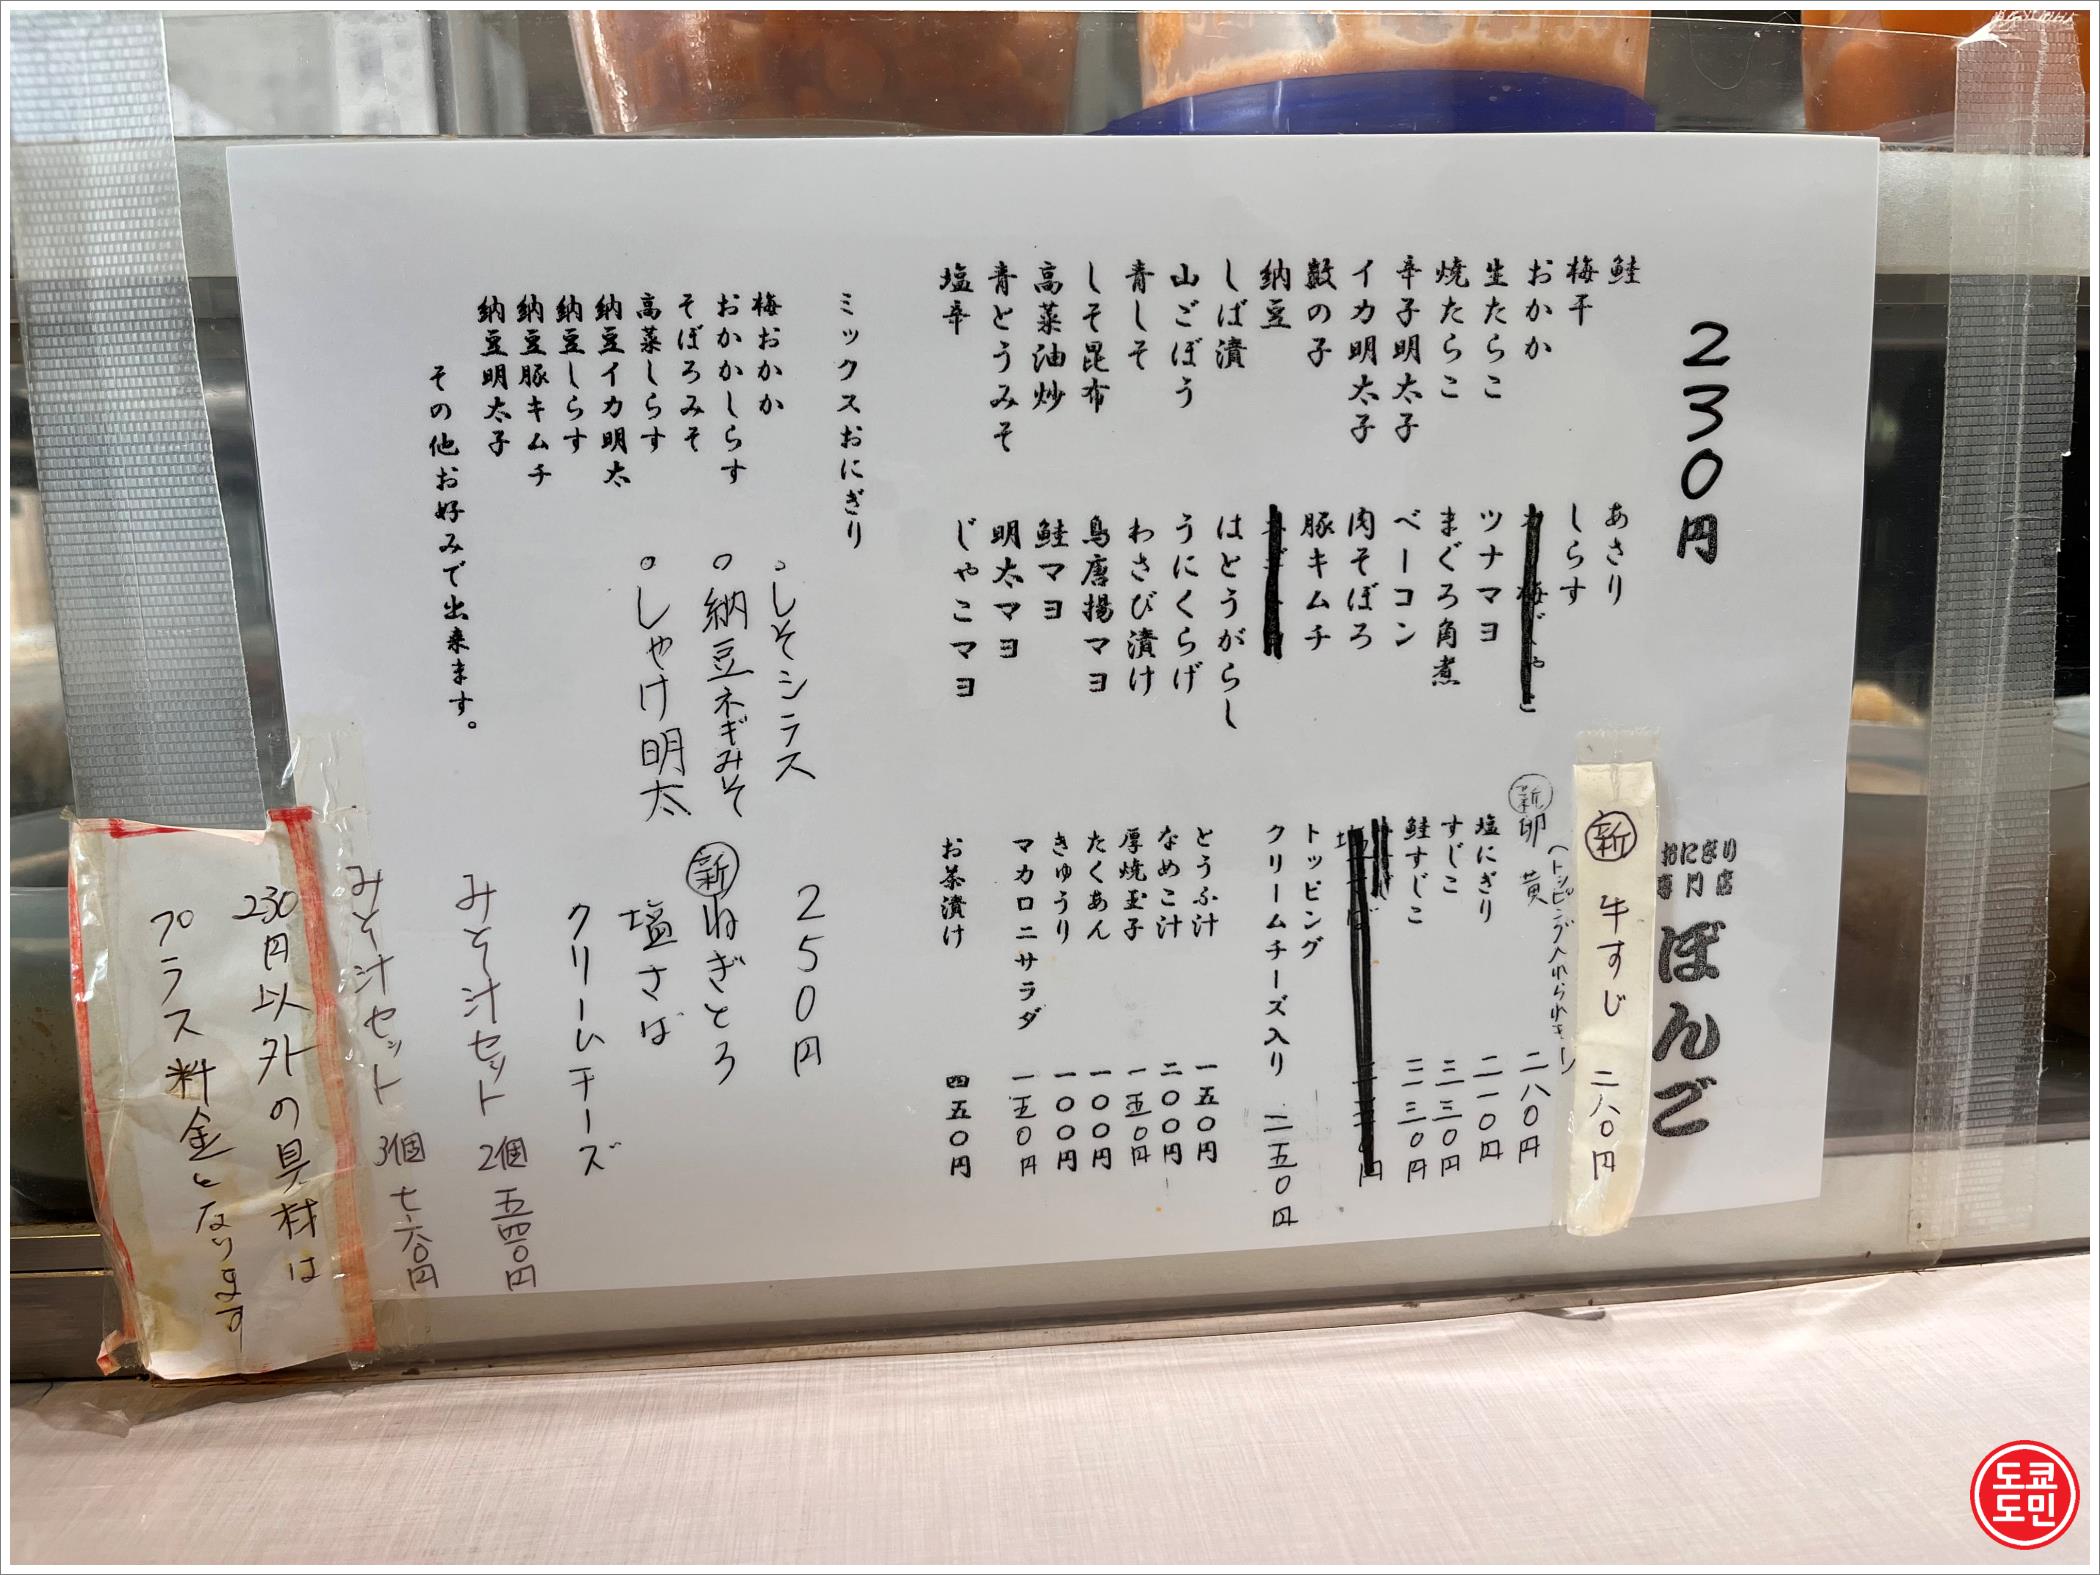 230円
おにぎり
専門店
ぼんご
鮭
梅干
おかか
生たらこ
焼たらこ
辛子明太子
イカ明太子
数の子
納豆
しば漬
山ごぼう
青しそ
しそ昆布
高菜油炒
青とうみそ
塩辛
あさり
しらす
ツナマヨ
まぐろ角煮
ベーコン
肉そぼろ
豚キムチ
はとうがらし
うにくらげ
わさび漬け
鳥唐揚マヨ
鮭マヨ
明太マヨ
じゃこマヨ
新 牛すじ 二八〇円
新 卵黄 二八〇円
塩にぎり 二一〇円
すじこ 三三〇円
鮭すじこ 三三〇円
トッピング
クリームチーズ入り 二五〇円
とうふ汁 一五〇円
なめこ汁 二〇〇円
厚焼玉子 一五〇円
たくあん 一〇〇円
きゅうり 一〇〇円
マカロニサラダ 一五〇円
お茶漬け 四五〇円
ミックスおにぎり
梅おかか
おかかしらす
そぼろみそ
高菜しらす
納豆イカ明太
納豆しらす
納豆豚キムチ
納豆明太子
その他お好みで出来ます。
。しそシラス
。納豆ネギみそ
。しゃけ明太
250円
新 ねぎとろ
塩さば
クリームチーズ
みそ汁セット 2個 五四〇円
みそ汁セット 3個 七六〇円
230円以外の具材は
プラス料金となります
도쿄
도민